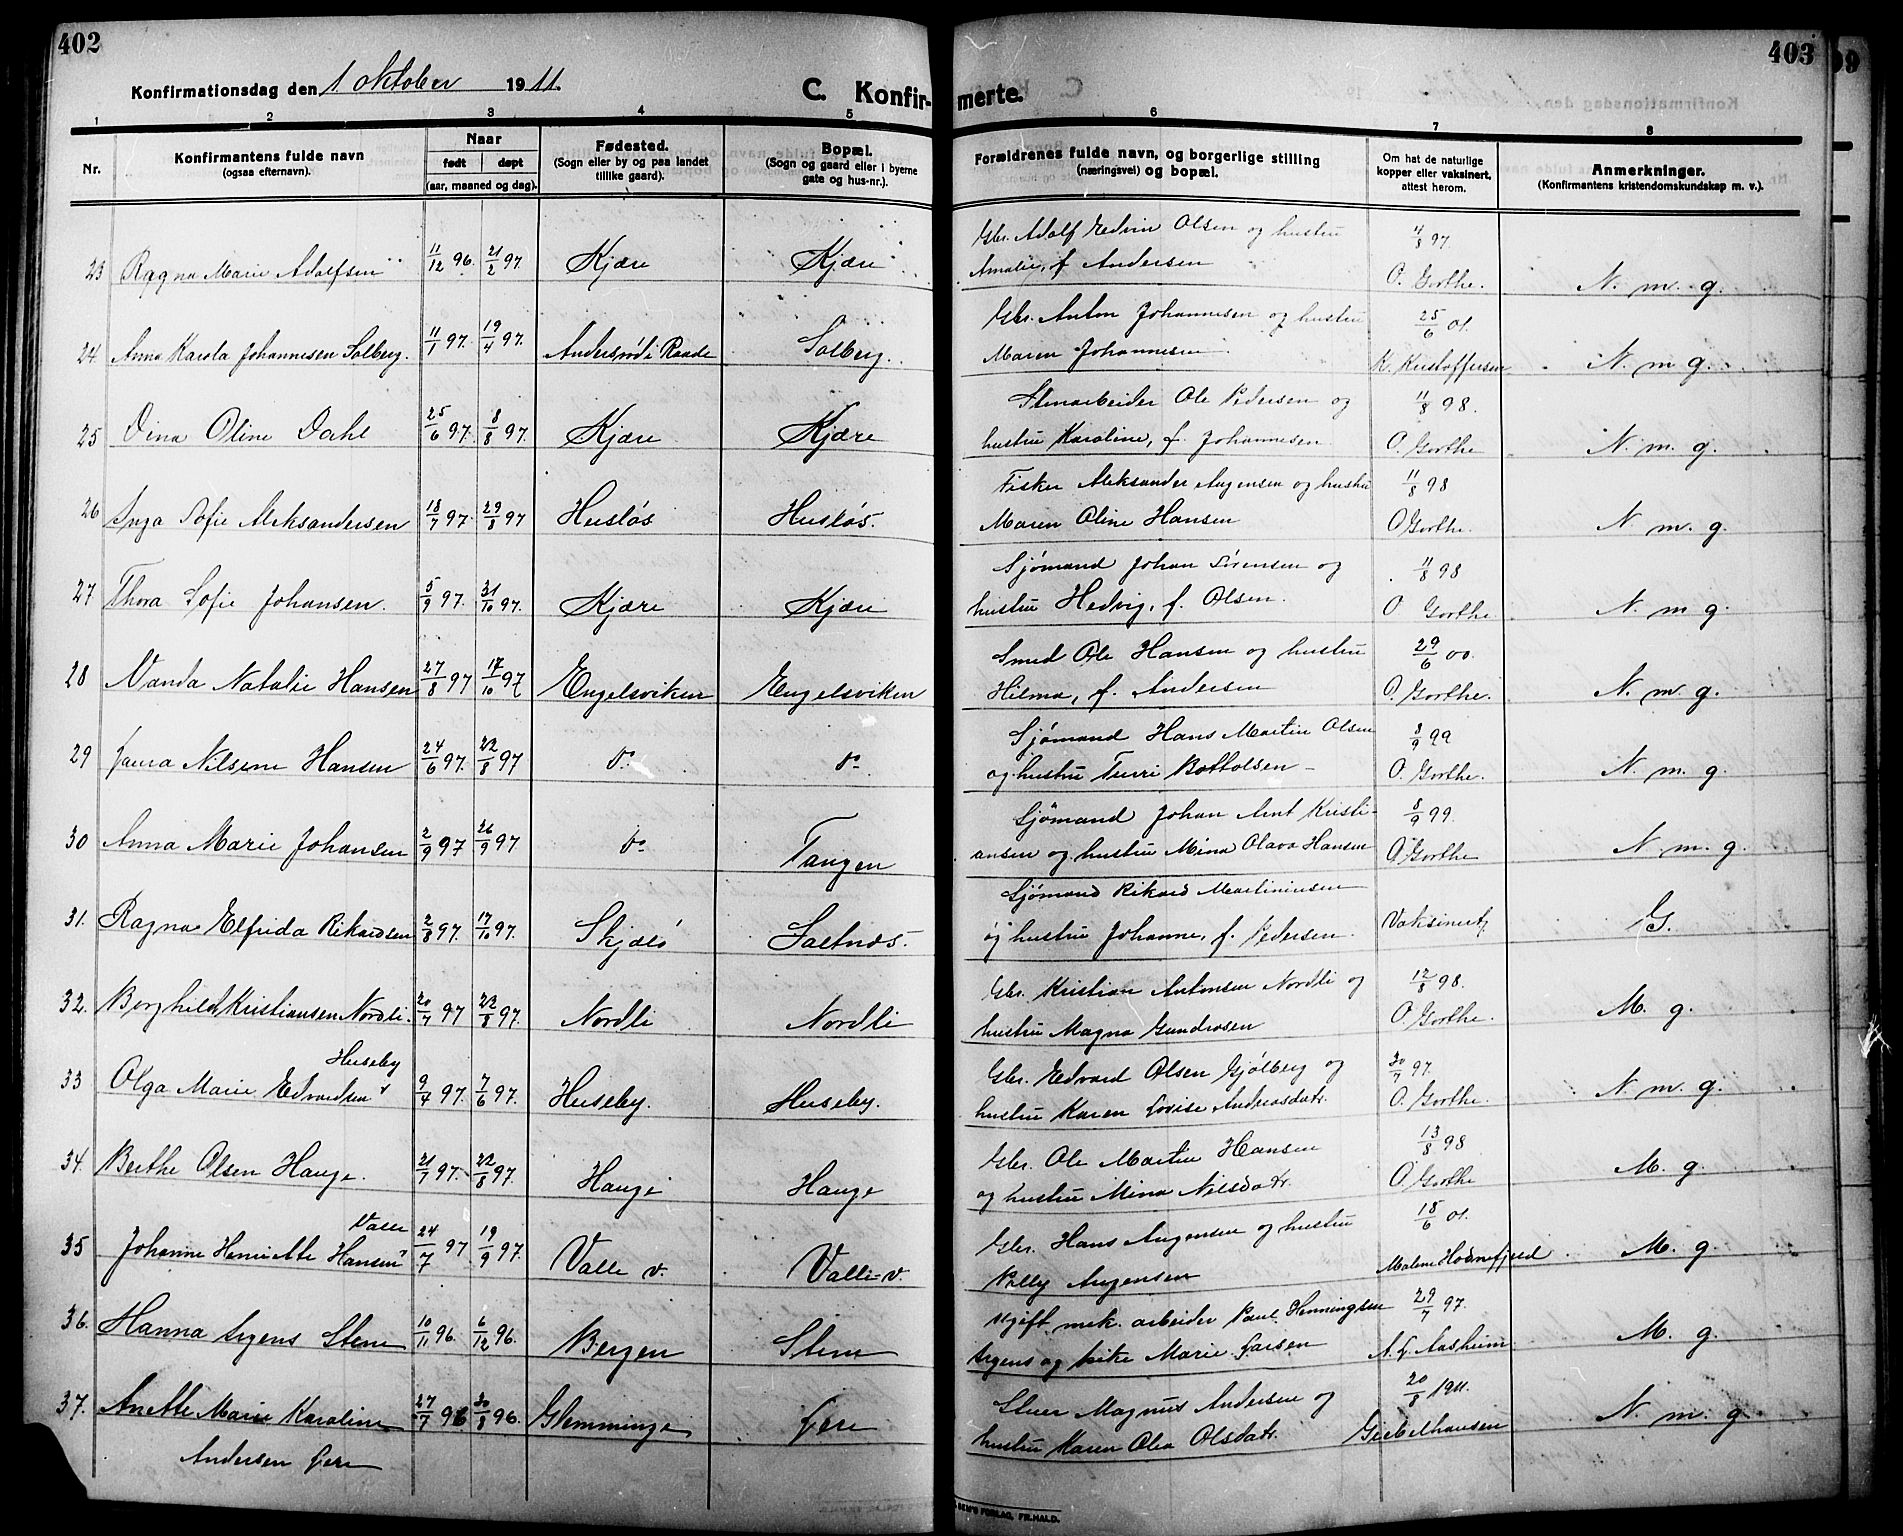 402
403
Konfirmationsdag den 1. oktober 1911.
C. Konfirmerte.
1 2 3 4 5 6 7 8
Nr.
Konfirmantens fulde navn
(ogsaa efternavn).
Naar
født døpt
(aar, maaned og dag).
Fødested.
(Sogn eller by og paa landet
tillike gaard).
Bopæl.
(Sogn og gaard eller i byerne
gate og hus-nr.).
Forældrenes fulde navn, og borgerlige stilling
(næringsvei) og bopæl.
Om hat de naturlige
kopper eller vaksinert,
attest herom.
Anmerkninger.
(Konfirmantens kristendomskundskap m. v.).
Gbr. Adolf Edvin Olsen og hustru 11/8 97.
23 Ragna Marie Adolfsen 11/12 96. 21/2 97. Kjære Kjære Amalie, f. Andersen O. Gorthe. N. m. g.
Gbr. Anton Johannesen og hustru 25/6 01.
24. Anna Karola Johannesen Solberg. 11/1 97. 19/4 97. Andersrød i Raade Solberg. Maren Johannesen K. Kristoffersen N. m g.
Stenarbeider Ole Pedersen og 11/8 98.
25 Dina Oline Dahl 25/6 97. 8/8 97. Kjære Kjære hustru Karoline, f. Johannesen O. Gorthe N. m. g.
Fisker Aleksander Augensen og hustru 11/8 98
26 Inga Sofie Aleksandersen 18/7 97. 29/8 97 Husløs Husløs. Maren Oline Hansen O Gorthe. N m. g.
Sjømand Johan Sørensen og 11/8 98
27 Thora Sofie Johansen. 5/9 97. 31/10 97. Kjære Kjære hustru Hedvig, f. Olsen. O Gorthe. N. m g.
Smed Ole Hansen og hustru 29/6 00.
28 Vanda Natalie Hansen 27/8 97 17/10 97 Engelsviken Engelsviken Hilma, f. Andersen O. Gorthe. N. m. g.
Sjømand Hans Martin Olsen 8/9 99
29 Laura Nilsine Hansen 24/6 97. 22/8 97 do do og hustru Turri Bottolsen O. Gorthe. N. m. g.
Sjømand Johan Arnt Kristi- 8/9 99.
30 Anna Marie Johansen 2/9 97 26/9 97 do Tangen ansen og hustru Mina Olava Hansen O Gorthe N m. g.
Sjømand Rikard Martiniusen
31. Ragna Elfrida Rikardsen 2/8 97. 17/10 97. Skjælø Saltnæs. og hustru Johanne, f. Pedersen. Vaksinert G.
Gbr. Kristian Antonsen Nordli og 12/8 98.
32. Borghild Kristiansen Nordli. 20/7 97 22/8 97. Nordli Nordli hustru Magna Gundrosen O. Gorthe. M. g.
Huseby Gbr. Edvard Olsen Gjølberg og 30/7 97.
33 Olga Marie Edvardsen 9/4 97. 7/6 97. Huseby. Huseby. hustru Karen Lovise Andreasdatr. O. Gorthe. N. m. g.
Gbr. Ole Martin Hansen 13/8 98
34. Berthe Olsen Hauge. 21/7 97. 22/8 97. Hauge Hauge og hustru Mina Nilsdatr. O Gorthe M. g.
Valle Gbr. Hans Augensen og hustru 18/6 01.
35 Johanne Henriette Hansen 24/7 97 19/9 97. Valle v. Valle v. Augensen M. g.
Ugift mek. arbeider Paul Henningsen 29/7 97.
36. Hanna Irgens Stene 10/11 96. 6/12 96. Bergen Stene Irgens og pike Marie Larsen A. L. Aasheim. M. g.
Stuer Magnus Andersen og 20/8 1911.
37. Anette Marie Karoline 27/7 96 30/8 96. Glemminge Lere hustru Karen Olea Olsdatr. Giebelhausen N. m. g.
Andersen Lere
SEM'S FORLAG, FR.HALD.